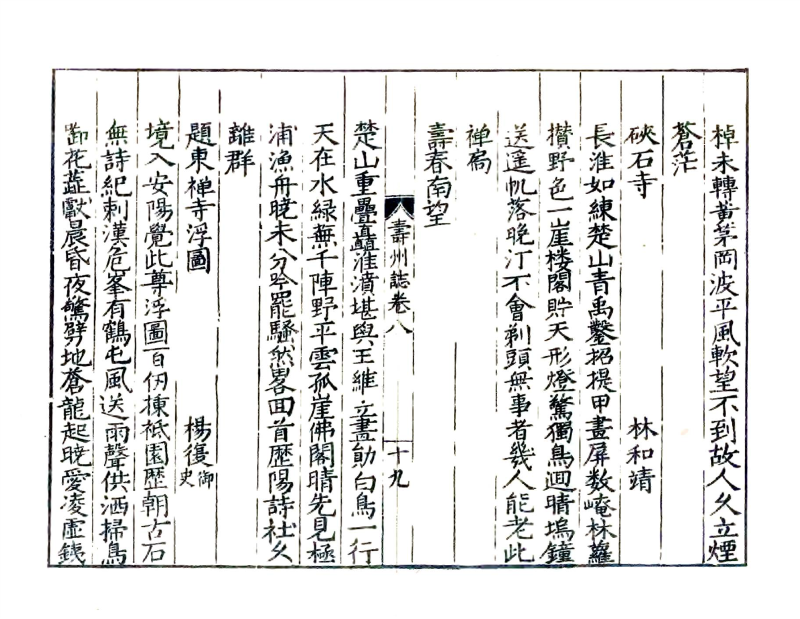 棹未轉黃茅岡波平風軟望不到故人久立煙
蒼茫
硤石寺 林和靖
長淮如練楚山青禹鑿招提甲畫屏数崦林蘿
攅野色一崖楼閣貯天形燈驚獨鳥迴晴塢鐘
送遥帆落晚汀不會剃頭無事者幾人能老此
禅扃
壽春南望
壽州誌卷八 十九
楚山重疊矗淮濆堪與王維立畫勛白鳥一行
天在水緑蕪千陣野平雲孤崖佛閣晴先見極
浦漁舟晚未分吟罷騷然畧回首歷陽詩社久
離群
題東禅寺浮圖 楊復御史
境入安陽覺此尊浮圖百仞揀祗園歷朝古石
無詩紀剌漢危峯有鶴屯風送雨聲供洒掃鳥
啣花蕋獻晨昏夜驚劈地蒼龍起曉愛凌虛銕